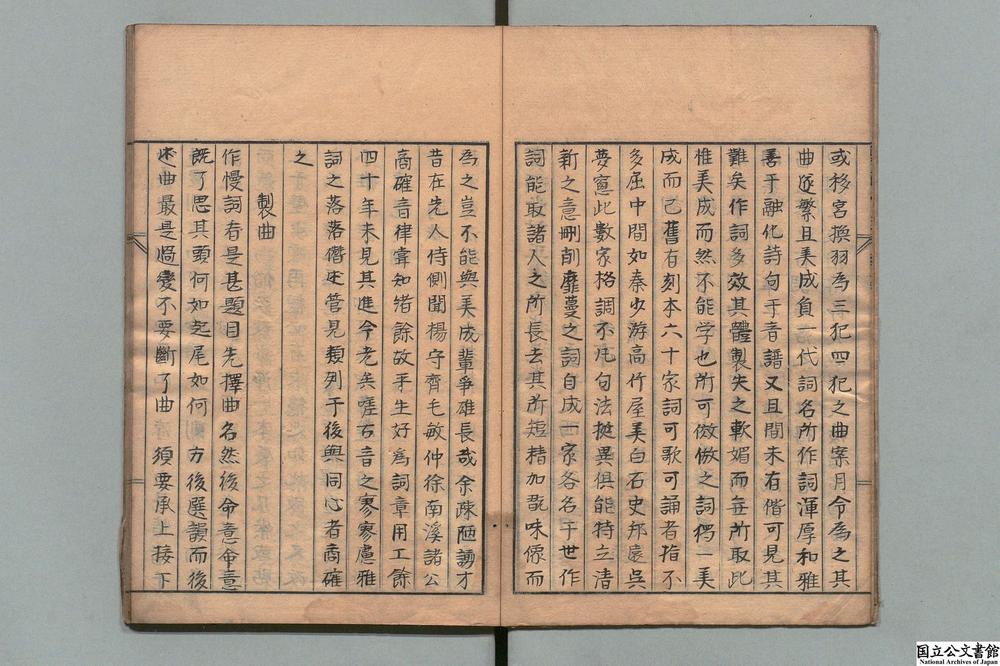 或移宮換羽為三犯四犯之曲案月令為之其
曲遂繁且美成負一代詞名所作詞渾厚和雅
善于融化詩句于音譜又且間未有偕可見其
難矣作詞多效其體製失之軟媚而無所取此
惟美成而然不能学也所可倣傚之詞豈一美
成而已舊有刻本六十家詞可歌可誦者指不
多屈中間如秦少游高竹屋姜白石史邦卿吳
夢窓此數家格調不凡句法挺異俱能特立清
新之意刪削靡蔓之詞自成一家各名于世作
詞能取諸人之所長去其所短精加翫味像而
為之豈不能與美成輩爭雄長哉余疎陋謭才
昔在先人侍側聞楊守齋毛敏仲徐南溪諸公
商確音律嘗知緒餘故平生好為詞章用工餘
四十年未見其進今老矣嗟古音之寥寥慮雅
詞之落落僭述管見類列于後與同心者商確
之
製曲
作慢詞看是甚題目先擇曲名然後命意命意
既了思其頭何如起尾如何制方後選韻而後
述曲最是過變不要斷了曲 須要承上接下
国立公文書館
National Archives of Japan